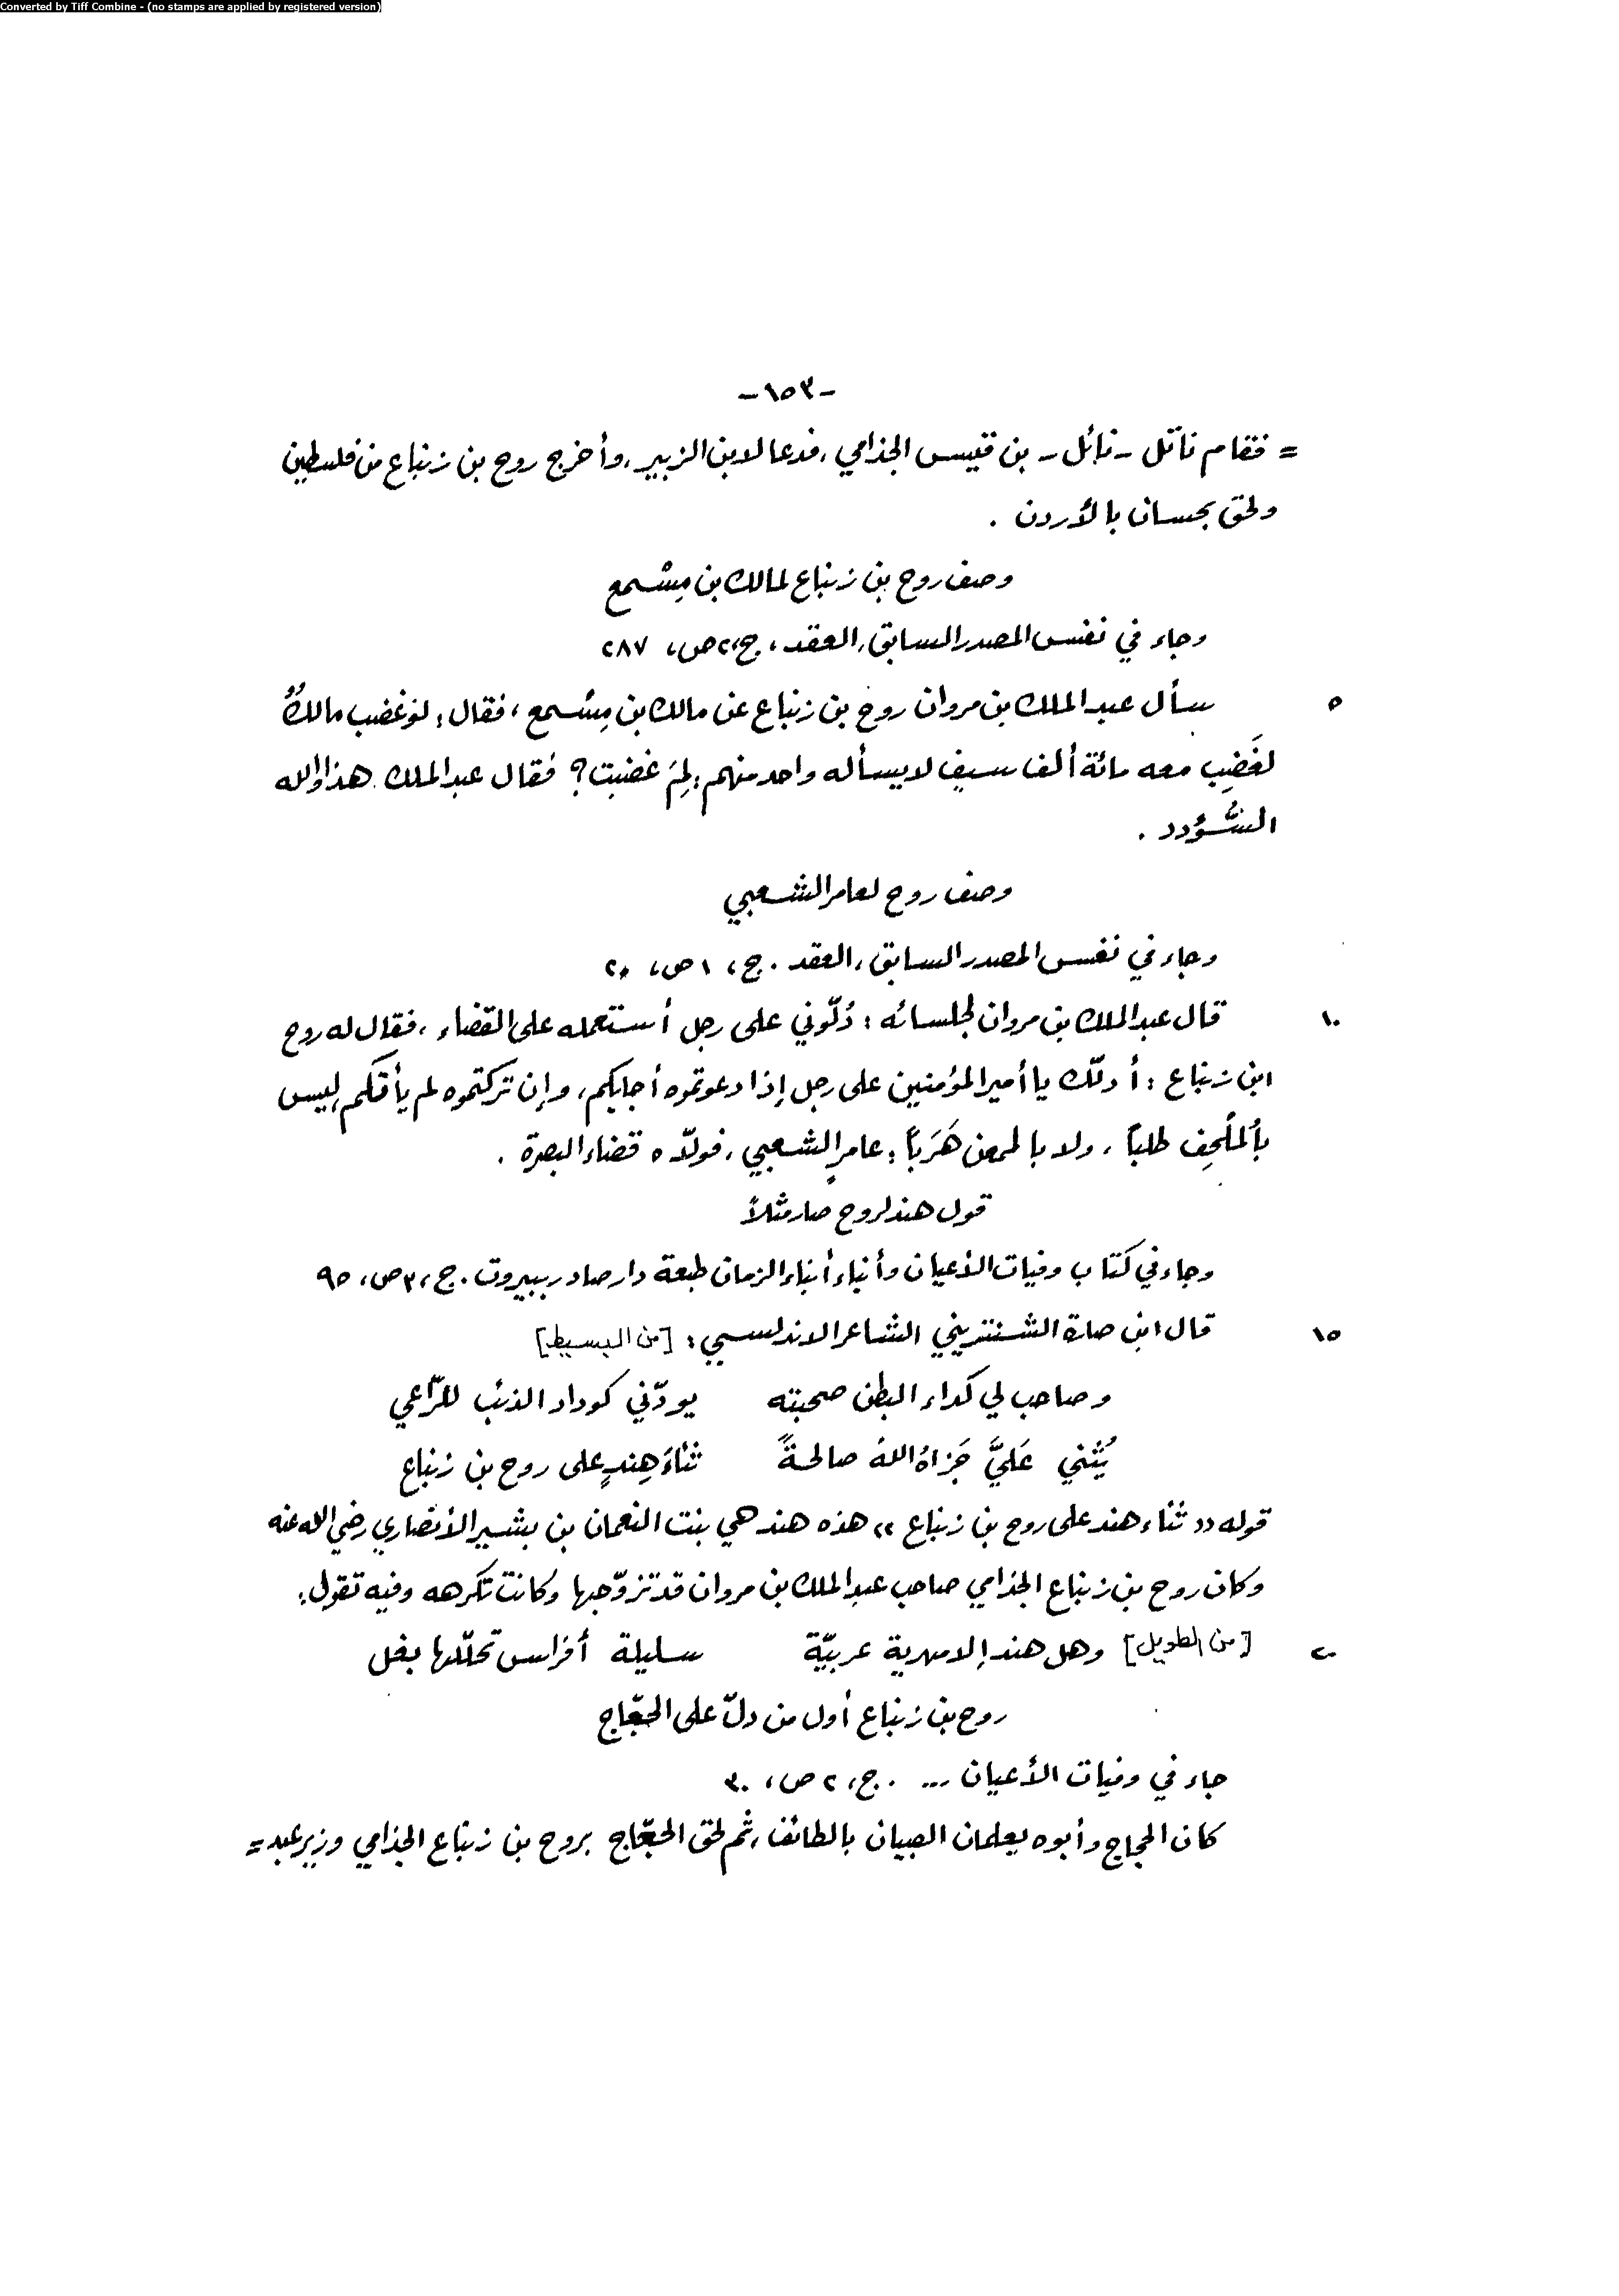 Converted by Tiff Combine - (no stamps are applied by registered version)
-١٥٣-
= فقام ناتل - نابئل - بن قيس الجذامي ، فدعا لابن الزبير ، وأخرج روح بن زنباع من فلسطين
ولحق بحسان بالأردن .
وصف روح بن زنباع لمالك بن مِسْمع
وجاء في نفس المصدر السابق ، العقد ، ج ، ٢ ص ، ٢٨٧
٥ سأل عبد الملك بن مروان روح بن زنباع عن مالك بن مِسْمع ، فقال : لو غضب مالكٌ
لغَضِب معه مائة ألف سيفٍ لا يسأله واحد منهم : لِمَ غضبت ؟ فقال عبد الملك هذا والله
السُّؤدد .
وصف روح لعامر الشعبي
وجاء في نفس المصدر السابق ، العقد . ج ، ١ ص ، ٢٠
١٠ قال عبد الملك بن مروان لجلسائه : دُلّوني على رجل أستعمله على القضاء ، فقال له روح
ابن زنباع : أدلّك يا أمير المؤمنين على رجل إذا دعوتموه أجابكم ، وإن تركتموه لم يأتكم ليس
بالمُلْحِف طلباً ، ولا بالممعن هَرَباً : عامرٍ الشعبي ، فولّاه قضاء البصرة .
قول هند لروح صار مثلاً
وجاء في كتاب وفيات الأعيان وأنباء أبناء الزمان طبعة دار صادر ببيروت . ج ، ٣ ص ، ٩٥
١٥ قال ابن صارة الشنتريني الشاعر الاندلسي : [من البسيط]
وصاحب لي كداء البطن صحبته يودّني كوداد الذئب للرّاعي
يُثني عَليَّ جَزاهُ اللهُ صالحةً ثناءَ هِندٍ على روح بن زنباع
قوله (( ثناء هند على روح بن زنباع )) هذه هند هي بنت النعمان بن بشير الأنصاري رضي الله عنه
وكان روح بن زنباع الجذامي صاحب عبد الملك بن مروان قد تزوّجها وكانت تكرهه وفيه تقول :
٢٠ [من الطويل] وهل هند إلا مهرية عربيّة سليلة أفراس تحلّلها بغل
روح بن زنباع أول من دلّ على الحجّاج
جاء في وفيات الأعيان ... . ج ، ٢ ص ، ٣٠
كان الحجاج وأبوه يعلمان الصبيان بالطائف ، ثم لحق الحجّاج بروح بن زنباع الجذامي وزير عبد =